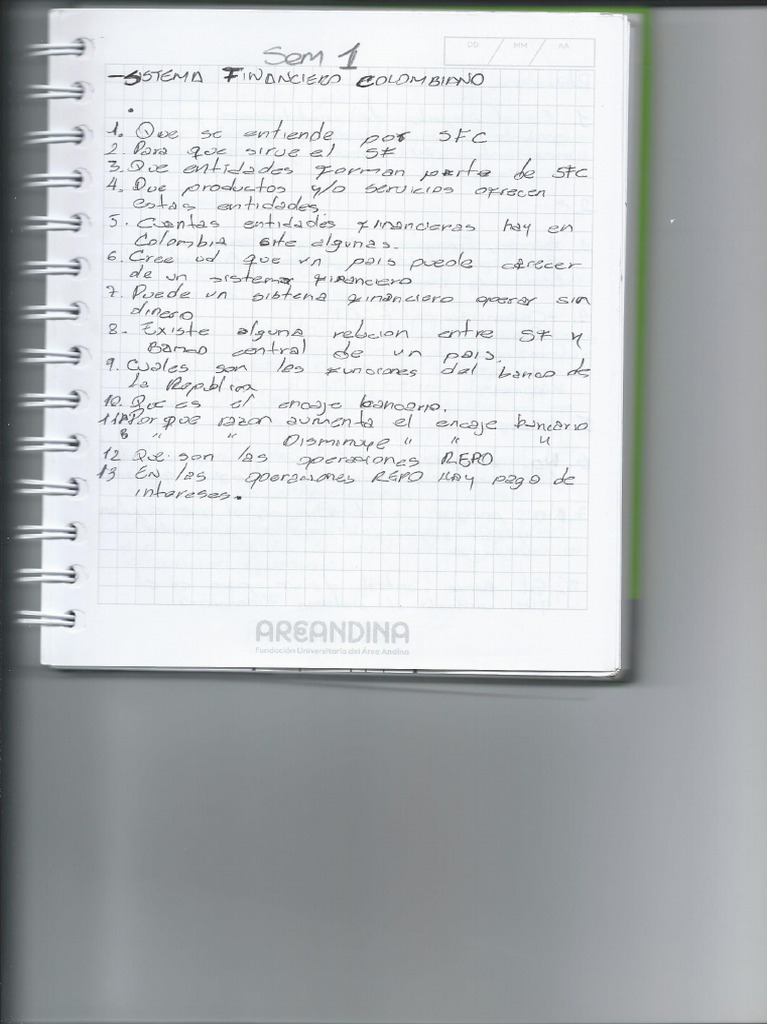 Sem 1
DD / MM / AA
-SISTEMA FINANCIERO COLOMBIANO
.
1. Que se entiende por SFC
2. Para que sirve el SF
3. Que entidades forman parte de SFC
4. Que productos y/o servicios ofrecen
estas entidades.
5. Cuantas entidades financieras hay en
Colombia site algunas.
6. Cree ud que un pais puede carecer
de un sistema financiero
7. Puede un sistema financiero operar sin
dinero
8. Existe alguna relacion entre SF y
Banco central de un pais.
9. Cuales son las funciones del banco de
La Republica
10. Que es el encaje bancario.
11A Por que razon aumenta el encaje bancario
B " " Disminuye " " "
12 Que son las operaciones REPO
13 En las operaciones REPO Hay pago de
intereses.
AREANDINA
Fundación Universitaria del Área Andina